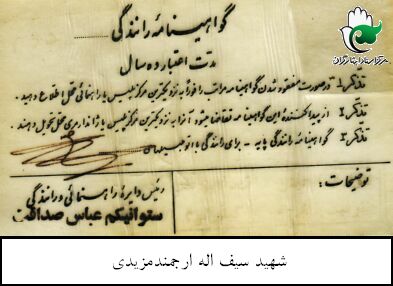 گواهینامه رانندگی
مدت اعتبار ده سال
تذکر ۱ در صورت مفقود شدن گواهینامه مراتب را فوراً به نزدیکترین مرکز پلیس یا راهنمائی محل اطلاع دهید.
تذکر ۲ از پیدا کننده این گواهینامه تقاضا میشود آنرا به نزدیکترین مرکز پلیس یا ژاندارمری محل تحویل دهند.
تذکر ۳ گواهینامه رانندگی پایه - برای رانندگی با
توضیحات:
رئیس دایره راهنمائی و رانندگی
ستوانیکم عباس صداقت
شهید سیف اله ارجمندمزیدی